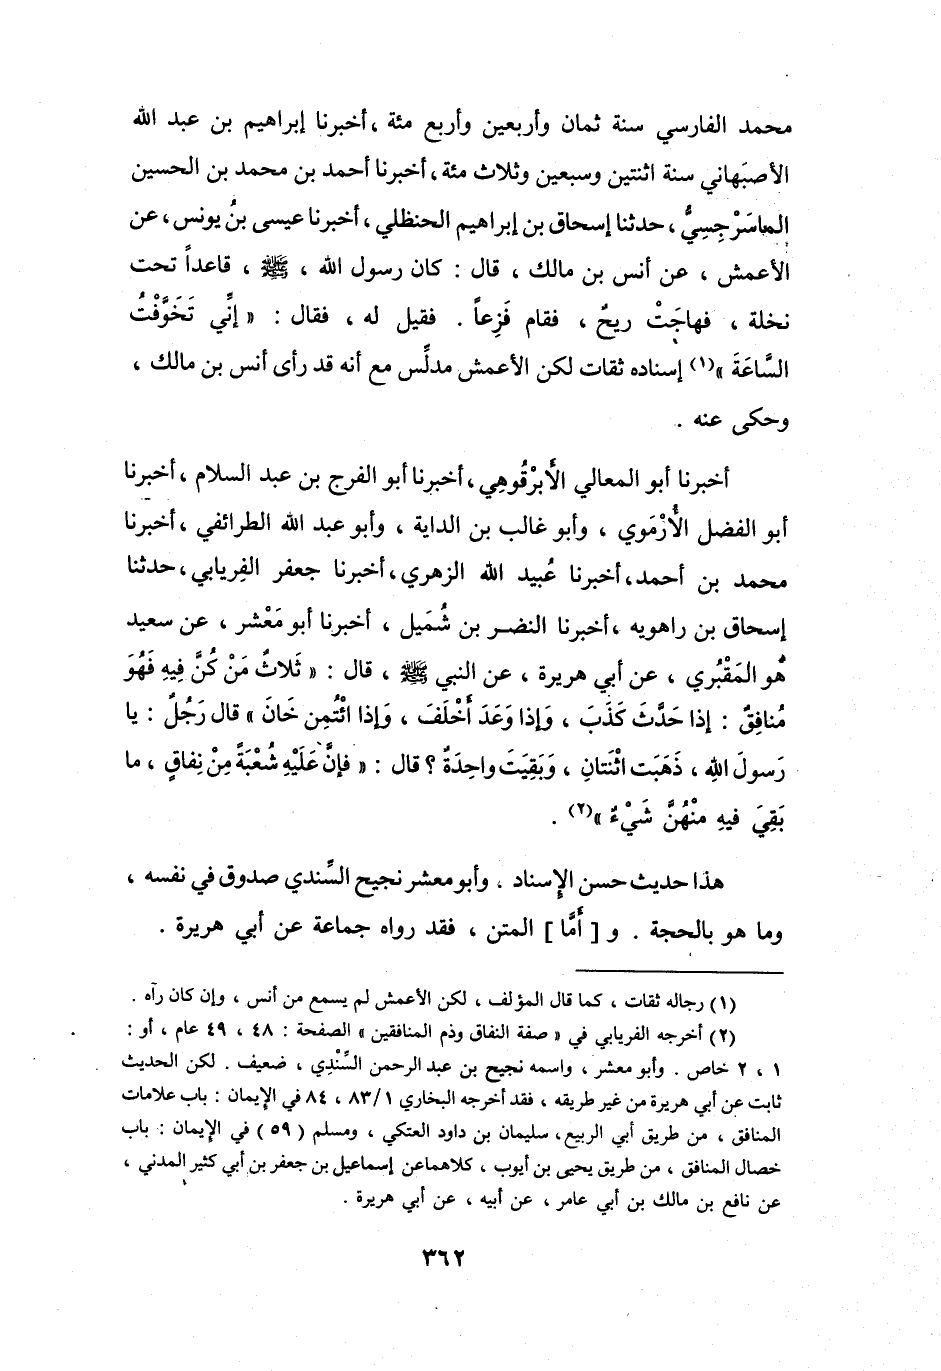 محمد الفارسي سنة ثمان وأربعين وأربع مئة ، أخبرنا إبراهيم بن عبد الله
الأصبَهاني سنة اثنتين وسبعين وثلاث مئة ، أخبرنا أحمد بن محمد بن الحسين
الماسَرْجِسِيُّ ، حدثنا إسحاق بن إبراهيم الحنظلي ، أخبرنا عيسى بنُ يونس ، عن
الأعمش ، عن أنس بن مالك ، قال : كان رسول الله ، ﷺ ، قاعداً تحت
نخلة ، فهاجَتْ ريحٌ ، فقام فَزِعاً . فقيل له ، فقال : « إنِّي تَخَوَّفْتُ
السَّاعَةَ »(١) إسناده ثقات لكن الأعمش مدلِّس مع أنه قد رأى أنس بن مالك ،
وحكى عنه .
أخبرنا أبو المعالي الأَبَرْقُوهِي ، أخبرنا أبو الفرج بن عبد السلام ، أخبرنا
أبو الفضل الأُرْمَوي ، وأبو غالب بن الداية ، وأبو عبد الله الطرائفي ، أخبرنا
محمد بن أحمد ، أخبرنا عُبيد الله الزهري ، أخبرنا جعفر الفِريابي ، حدثنا
إسحاق بن راهويه ، أخبرنا النضر بن شُمَيل ، أخبرنا أبو مَعْشر ، عن سعيد
هُو المَقْبُري ، عن أبي هريرة ، عن النبي ﷺ ، قال : « ثَلاثٌ مَنْ كُنَّ فِيهِ فَهُوَ
مُنافِقٌ : إذا حَدَّثَ كَذَبَ ، وَإذا وَعَدَ أَخْلَفَ ، وَإذا ائْتُمِن خَانَ » قال رَجُلٌ : يا
رَسولَ اللهِ ، ذَهَبَت اثْنَتانِ ، وَبَقِيَتَ واحِدَةٌ ؟ قال : « فإنَّ عَلَيْهِ شُعْبَةً مِنْ نِفاقٍ ، ما
بَقِيَ فيهِ مِنْهُنَّ شَيْءٌ »(٢) .
هذا حديث حسن الإسناد ، وأبو معشر نجيح السِّندي صدوق في نفسه ،
وما هو بالحجة . و [ أَمَّا ] المتن ، فقد رواه جماعة عن أبي هريرة .
(١) رجاله ثقات ، كما قال المؤلف ، لكن الأعمش لم يسمع من أنس ، وإن كان رآه .
(٢) أخرجه الفريابي في « صفة النفاق وذم المنافقين » الصفحة : ٤٨ ، ٤٩ عام ، أو :
١ ، ٢ خاص . وأبو معشر ، واسمه نجيح بن عبد الرحمن السِّنْدِي ، ضعيف . لكن الحديث
ثابت عن أبي هريرة من غير طريقه ، فقد أخرجه البخاري ٨٣/١ ، ٨٤ في الإيمان : باب علامات
المنافق ، من طريق أبي الربيع ، سليمان بن داود العتكي ، ومسلم ( ٥٩ ) في الإيمان : باب
خصال المنافق ، من طريق يحيى بن أيوب ، كلاهما عن إسماعيل بن جعفر بن أبي كثير المدني ،
عن نافع بن مالك بن أبي عامر ، عن أبيه ، عن أبي هريرة .
٣٦٢